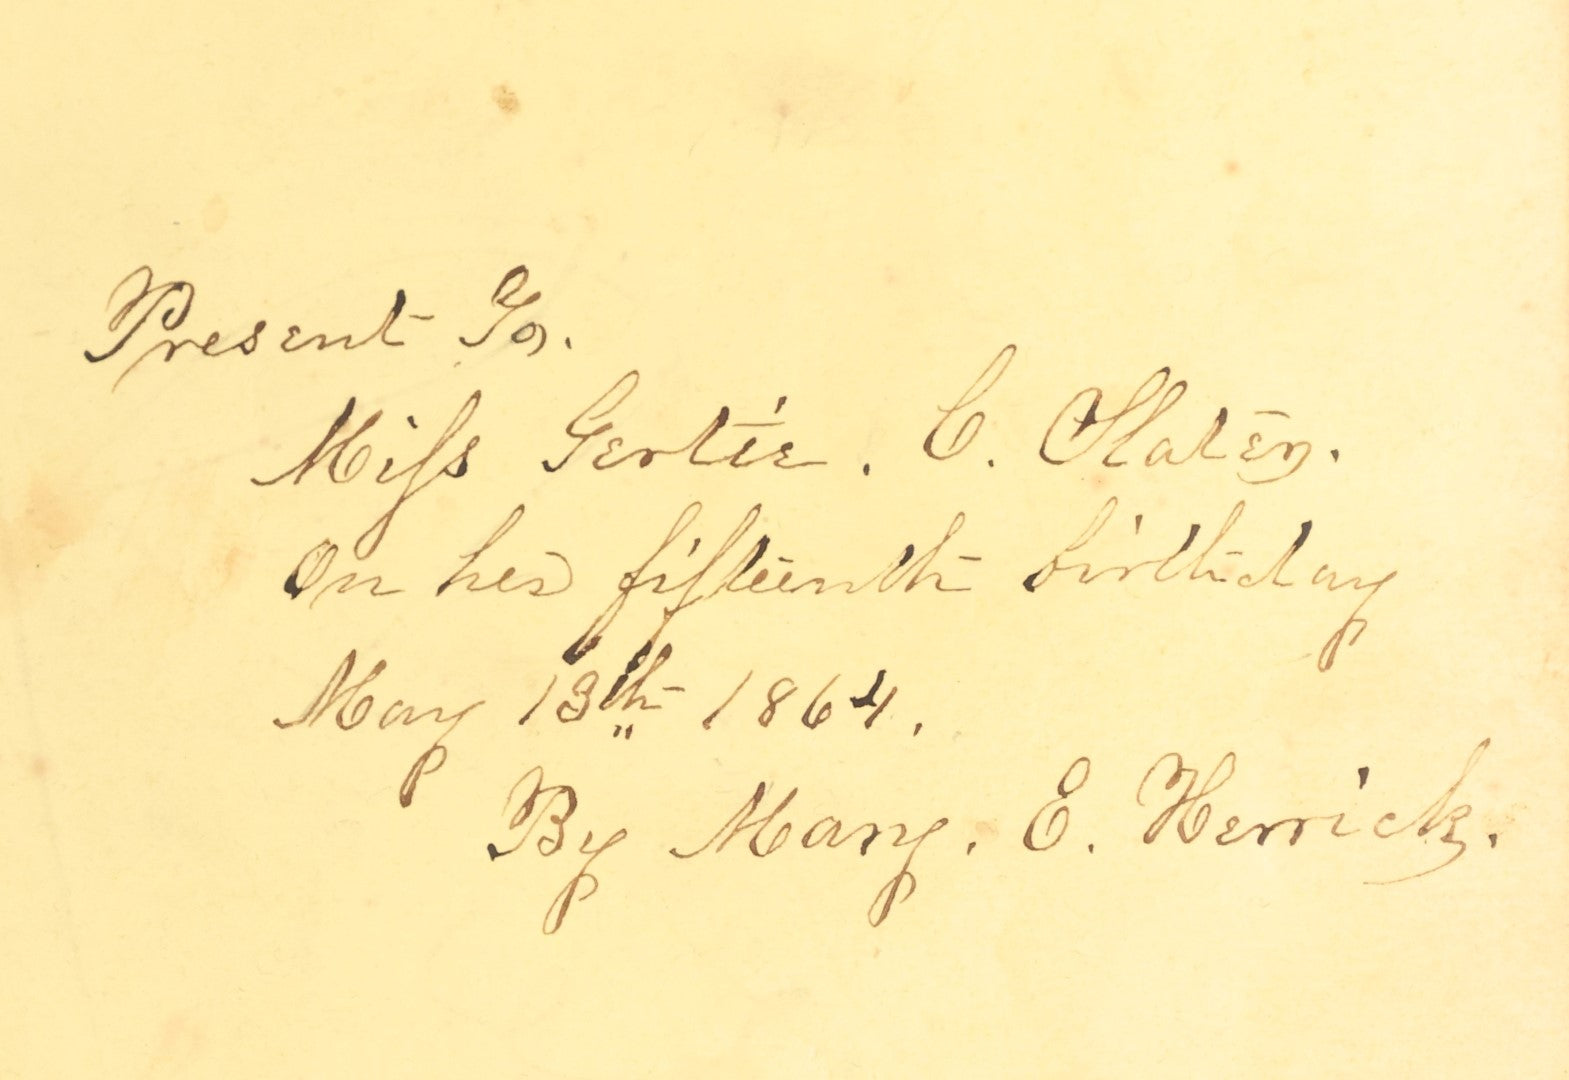 Present To.
Miss Gertie. C. Slater.
On her fifteenth birthday
May 13th 1864.
By Mary. E. Herrick.